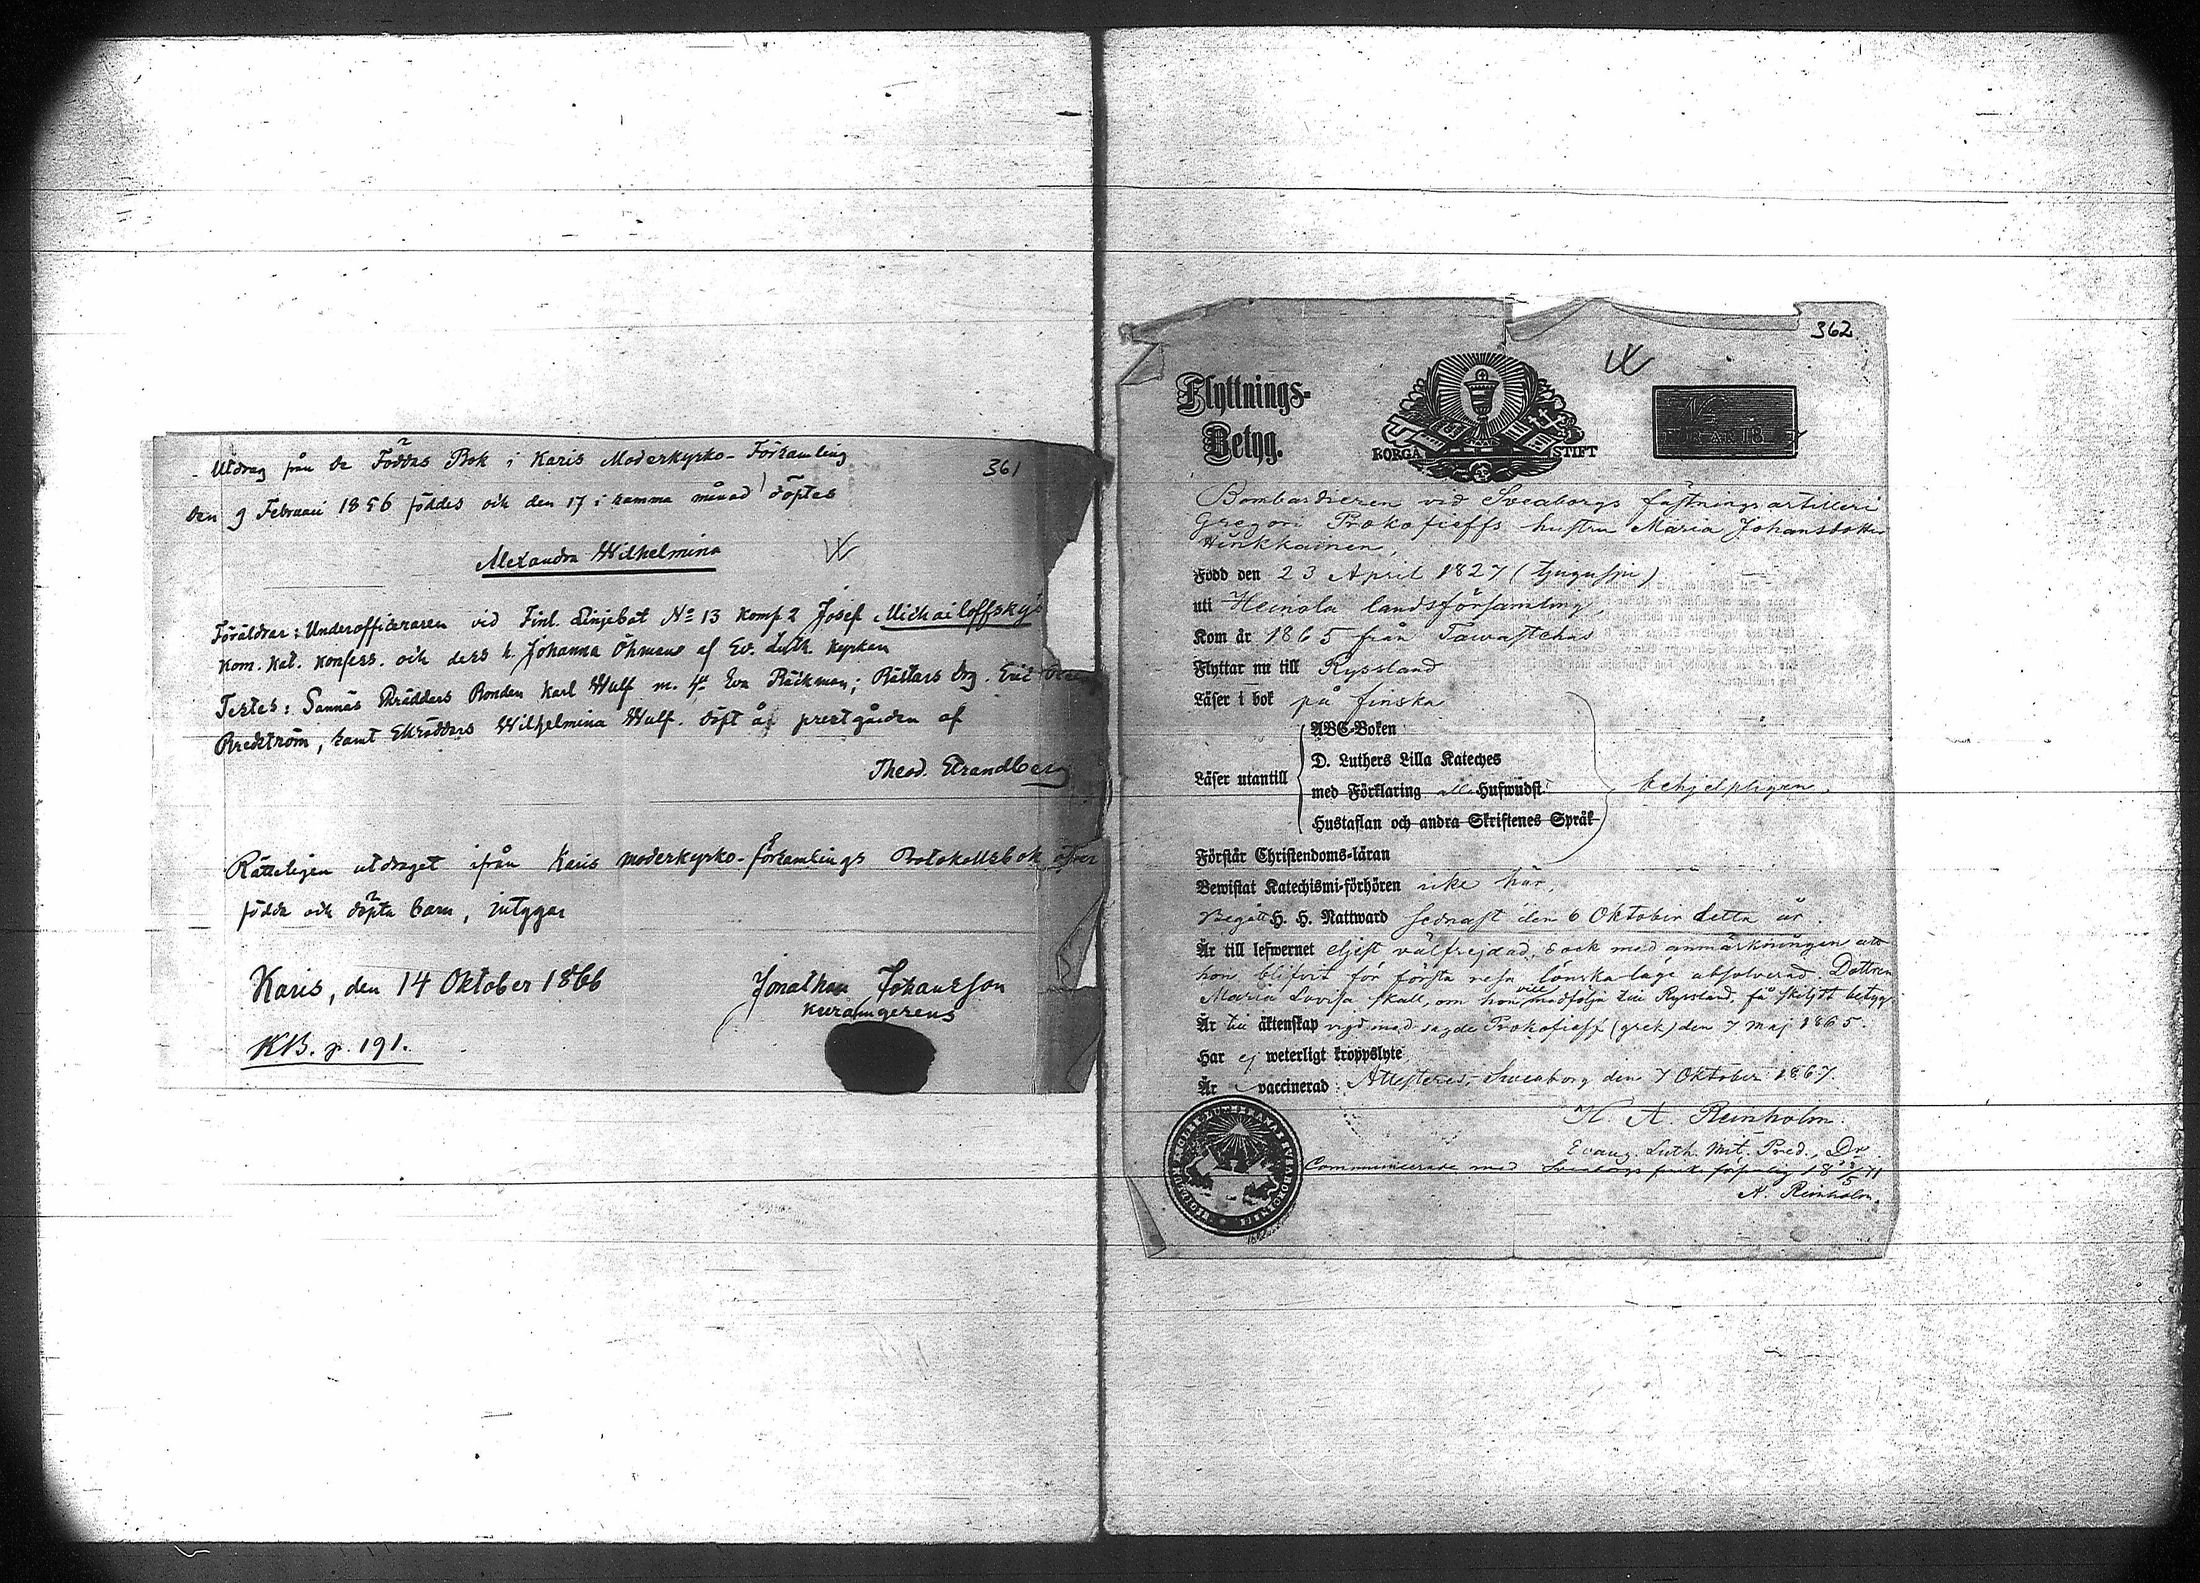 361
Utdrag från de Föddas Bok i Karis Moderkyrko-Församling
den 9 Februari 1856 föddes och den 17 i samma månad döptes
Alexandra Wilhelmina
Föräldrar: Underofficeraren vid Finl. Linjebat № 13 Komp. 2 Josef Michailoffsky's
Rom. Kat. Konfess. och dess h. Johanna Öhman af Ev. Luth. Kyrkan
Testes: Sannäs Skräddars Bonden Karl Wulf m. h. Eva Bäckman; Bästars Drg. Eric
Bredström, samt Skräddars Wilhelmina Wulf. döpt å prestgården af
Theod. Strandberg
Rätteligen utdraget ifrån Karis moderkyrko-församlings Protokollsbok öfver
födda och döpta barn, intygar
Karis, den 14 Oktober 1866 Jonathan Johansson
Kyrkoh. adj.
KB. p. 191.
362.
Flyttnings-
Betyg.
BORGÅ STIFT
№
FÖR ÅR 18 7
Bombardieren vid Sveaborgs fästningsartilleri
Gregori Prokofieffs hustru Maria Johansdotter
Hinkkainen,
Född den 23 April 1827 (tjugusju)
uti Heinola landsförsamling,
Kom år 1865 från Tawastehus
Flyttar nu till Ryssland
Läser i bok på finska
Läser utantill
ABC-Boken
D. Luthers Lilla Kateches
med Förklaring alla Hufwudst:
Hustaflan och andra Skriftenes Språk
behjelpligen.
Förstår Christendoms-läran
Bewistat Katechismi-förhören icke här,
Begått H. H. Nattward sednast den 6 Oktober detta år.
Är till lefwernet eljest välfrejdad, dock med anmärkningen att
hon blifvit för första resa lönska-läge absolverad. Dottren
Maria Lovisa skall, om hon vill medfölja till Ryssland, få skiljdt betyg.
Är till äktenskap vigd med sagde Prokofieff (grek) den 7 Maj 1865.
Har ej weterligt kroppslyte
Är vaccinerad: Attesteras, Sveaborg den 7 Oktober 1867.
H. A. Reinholm.
Evang. Luth. Mil. Pred., Dr
Communicerade med Sveaborgs finska församling
A. Reinholm.